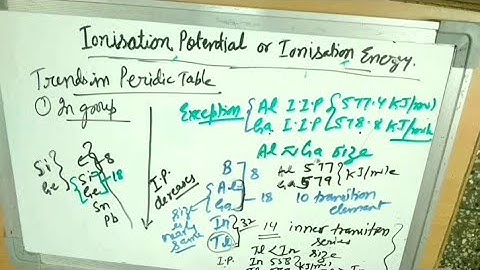 Ionisation Potential or Ionisation Energy.
Trends in Peridic Table
① In group
I.P. decreases
C
Si
Ge
Sn
Pb
Si
Ge
8
18
Exception
Al I.I.P 577.4 KJ/mol
Ga I.I.P 578.8 KJ/mole
Al ≈ Ga size
B
Al
Ga
In
Tl
8
18
32
size is nearly same
Al 577
Ga 579
KJ/mole
10 transition element
14 inner transition series
Tl < In size
I.P. In 558 KJ/mol